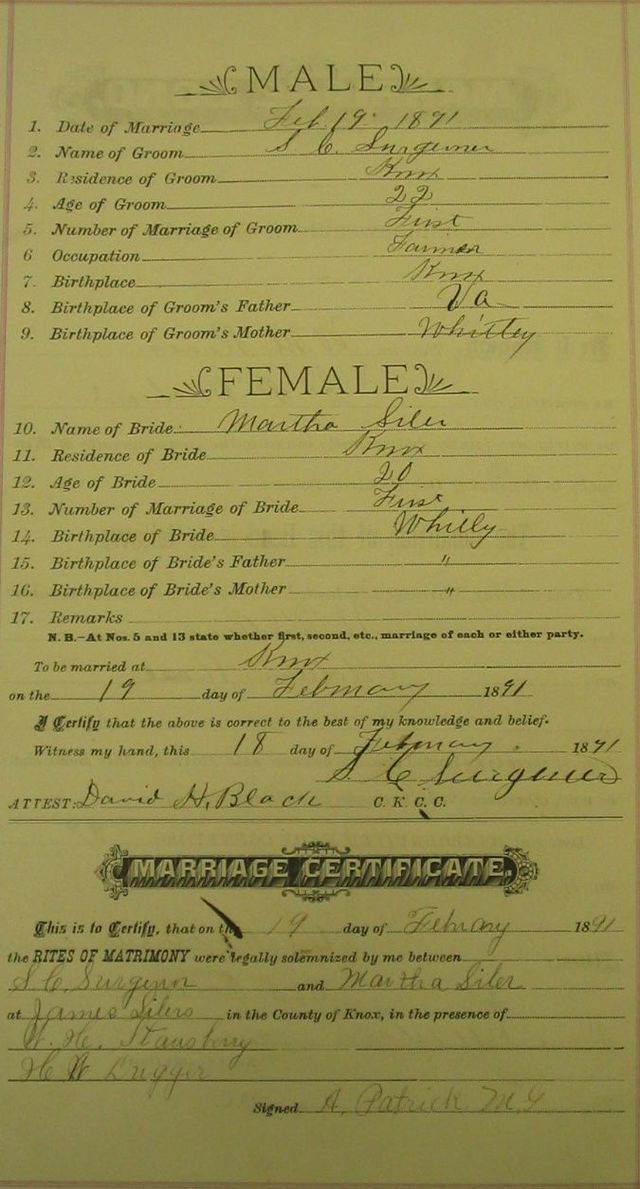 MALE
1. Date of Marriage Feb. 19 1891
2. Name of Groom S C. Surgener
3. Residence of Groom Knox
4. Age of Groom 22
5. Number of Marriage of Groom First
6 Occupation Farmer
7. Birthplace Knox
8. Birthplace of Groom's Father Va
9. Birthplace of Groom's Mother Whitley
FEMALE
10. Name of Bride Martha Siler
11. Residence of Bride Knox
12. Age of Bride 20
13. Number of Marriage of Bride First
14. Birthplace of Bride Whitly
15. Birthplace of Bride's Father "
16. Birthplace of Bride's Mother "
17. Remarks
N. B.-At Nos. 5 and 13 state whether first, second, etc., marriage of each or either party.
To be married at Knox
on the 19 day of February 1891
I Certify that the above is correct to the best of my knowledge and belief.
Witness my hand, this 18 day of February. 1891
S C Surgener
ATTEST: David H. Black C. K. C. C.
MARRIAGE CERTIFICATE.
This is to Certify, that on the 19 day of February 1891
the RITES OF MATRIMONY were legally solemnized by me between
S C. Surgenor and Martha Siler
at James Silers in the County of Knox, in the presence of
W. H. Stansberry
H W Dugger
Signed A. Patrick M. G